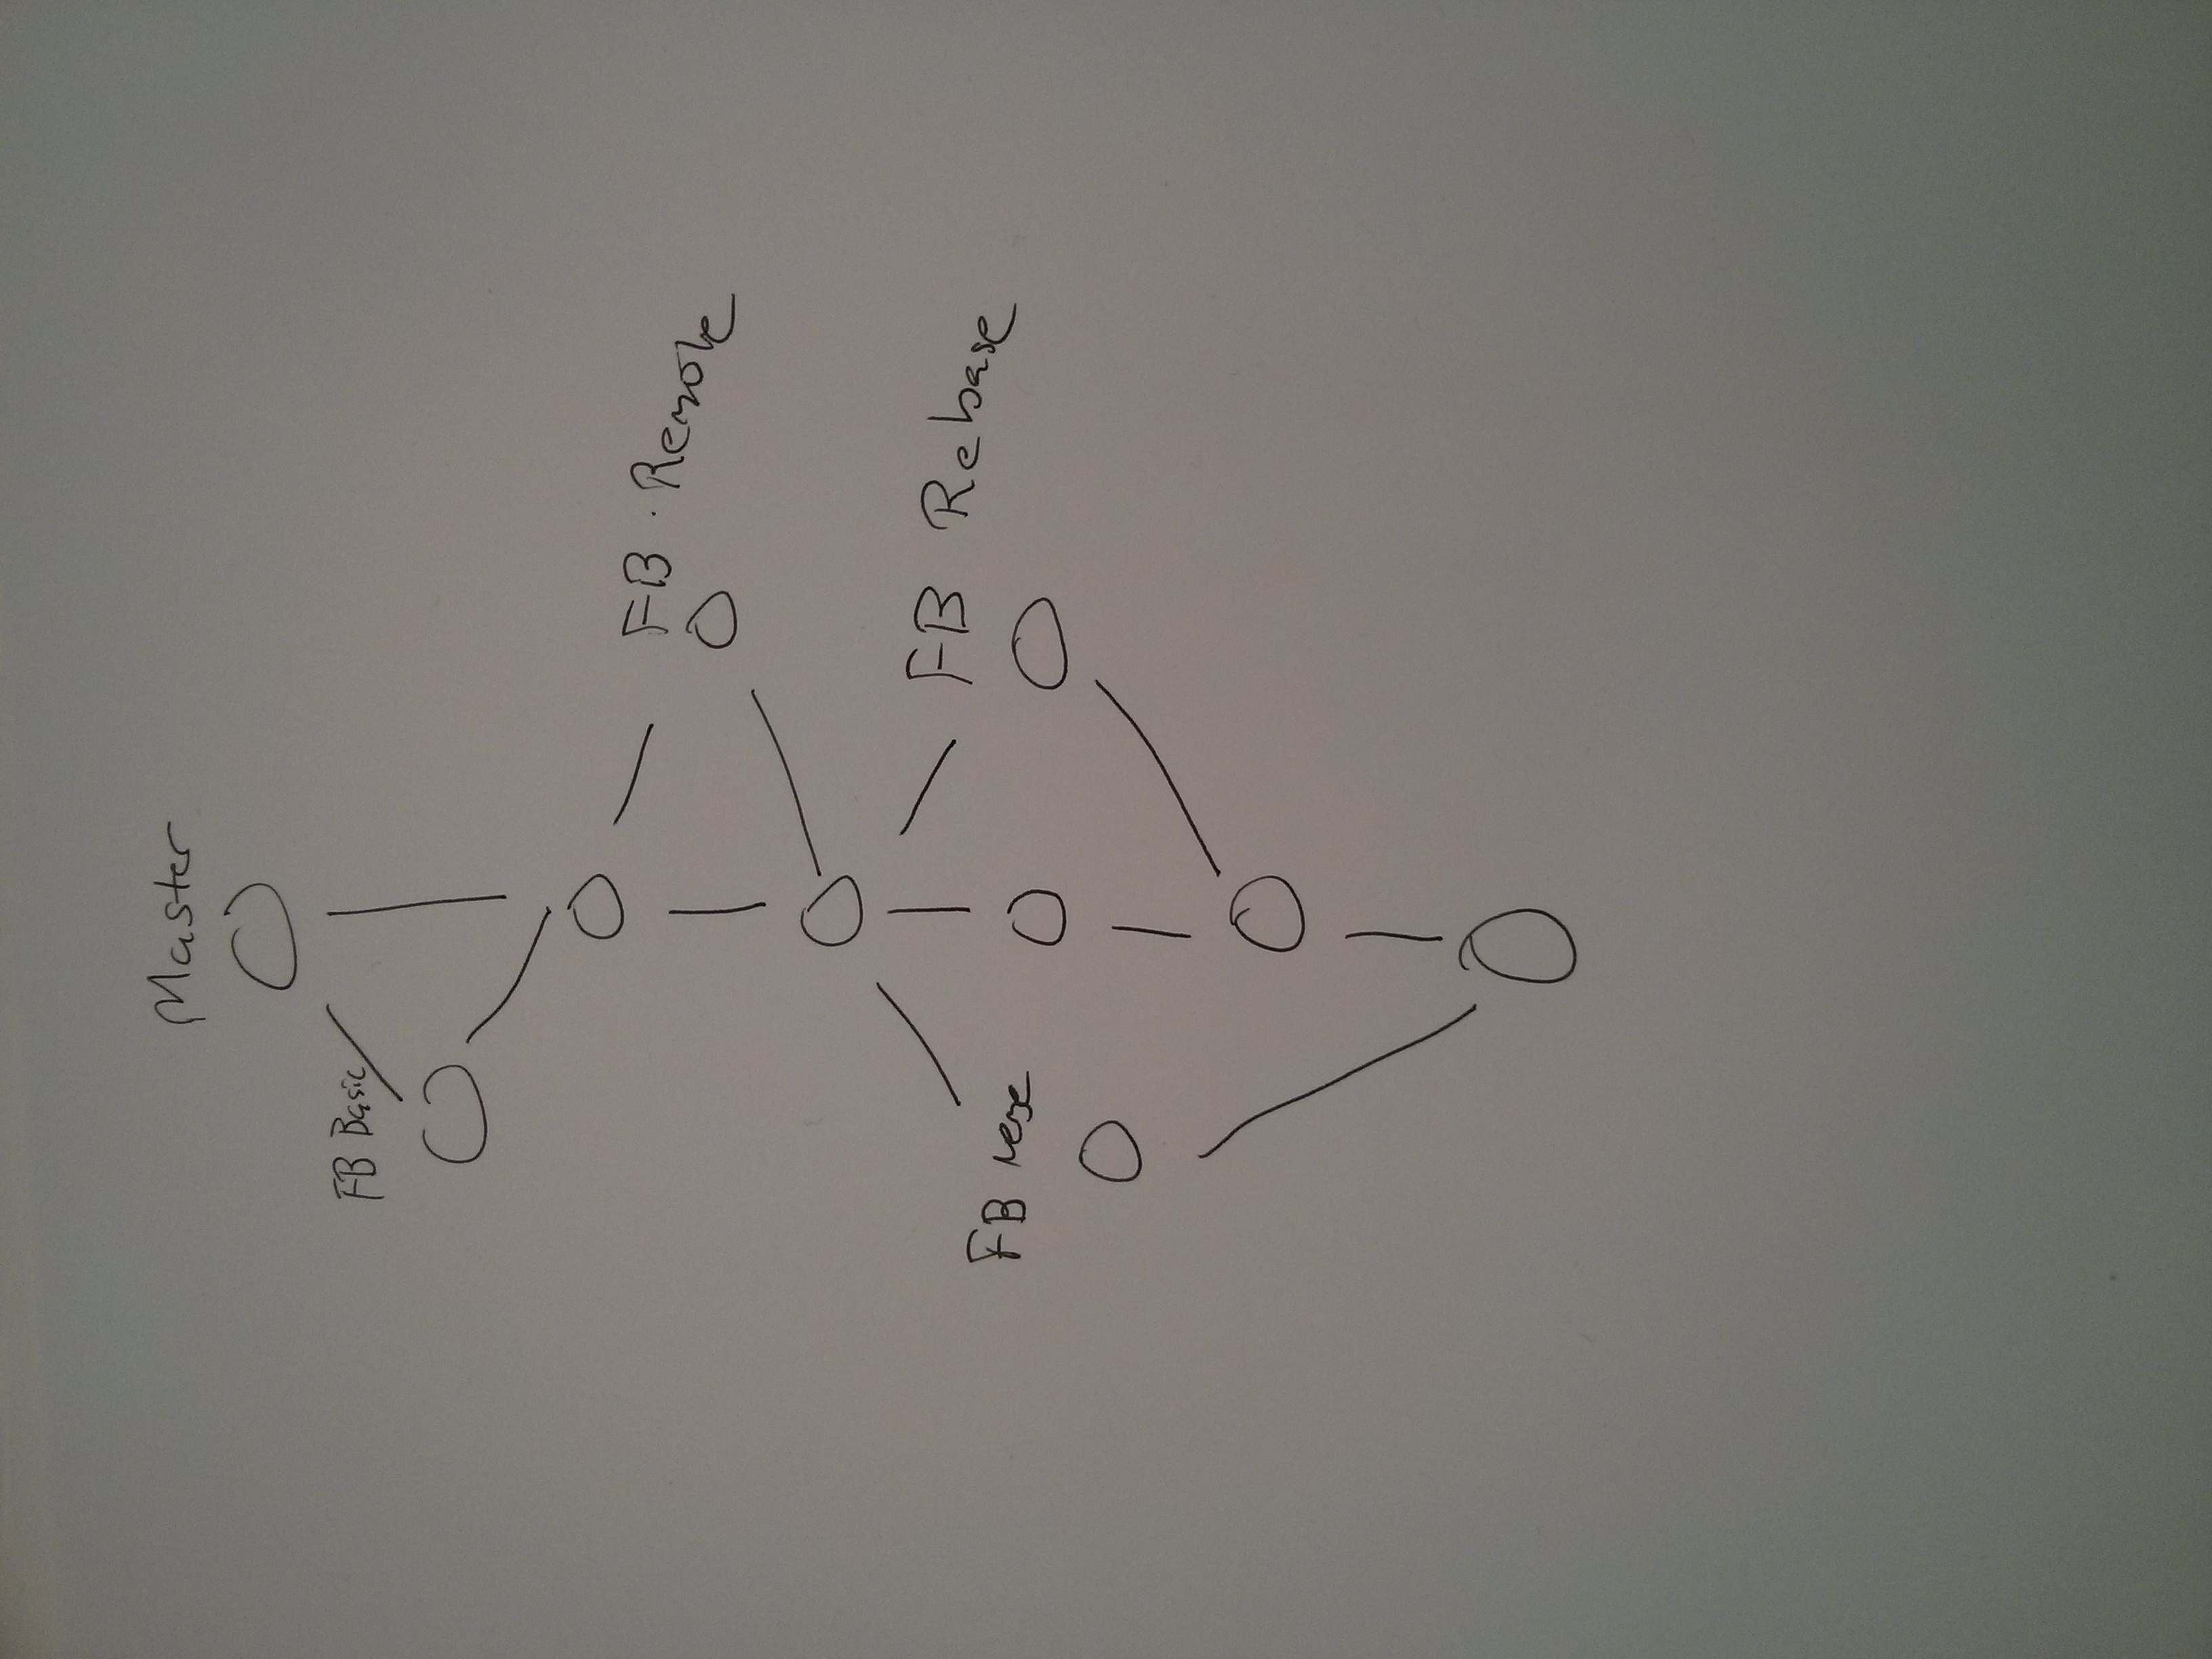 Master
FB Basic
FB Remote
FB Rebase
FB Merge